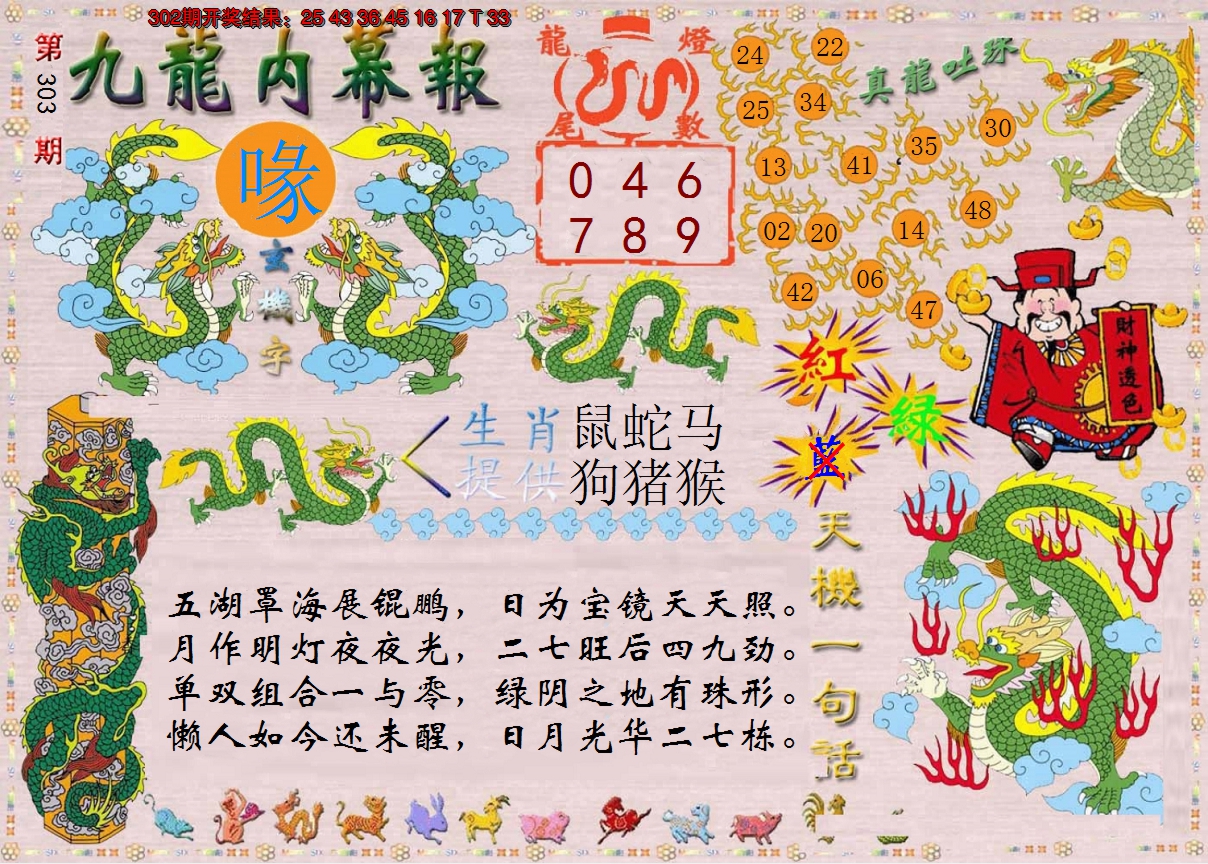 302期开奖结果：25 43 36 45 16 17 T 33
第
303
期
九龍内幕報
喙
玄
機
字
龍
燈
尾
數
0 4 6
7 8 9
真龍吐珠
24
22
25
34
13
41
35
30
02
20
14
48
42
06
47
紅
綠
藍
財神透色
生肖
提供
鼠蛇马
狗猪猴
五湖罩海展锟鹏，日为宝镜天天照。
月作明灯夜夜光，二七旺后四九劲。
单双组合一与零，绿阴之地有珠形。
懒人如今还未醒，日月光华二七栋。
天機一句話